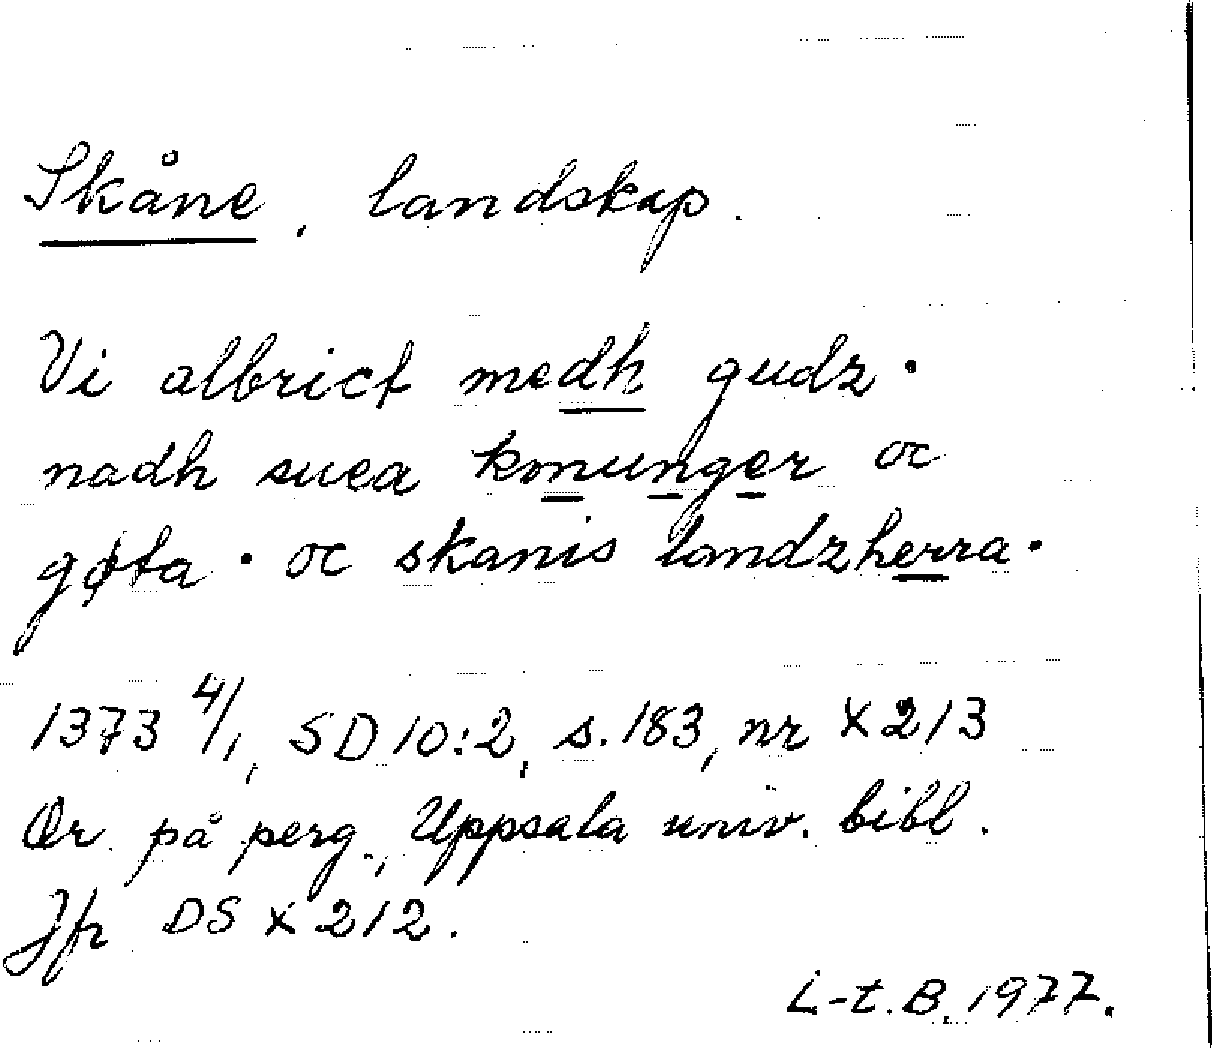 Skåne, landskap.
Vi albrict medh gudz ·
nadh suea konunger oc
gøta · oc skanis landzherra ·
1373 4/1, SD 10:2, s. 183, nr X 213
Or på perg., Uppsala univ. bibl.
Jfr DS X 212.
L-t. B. 1977.